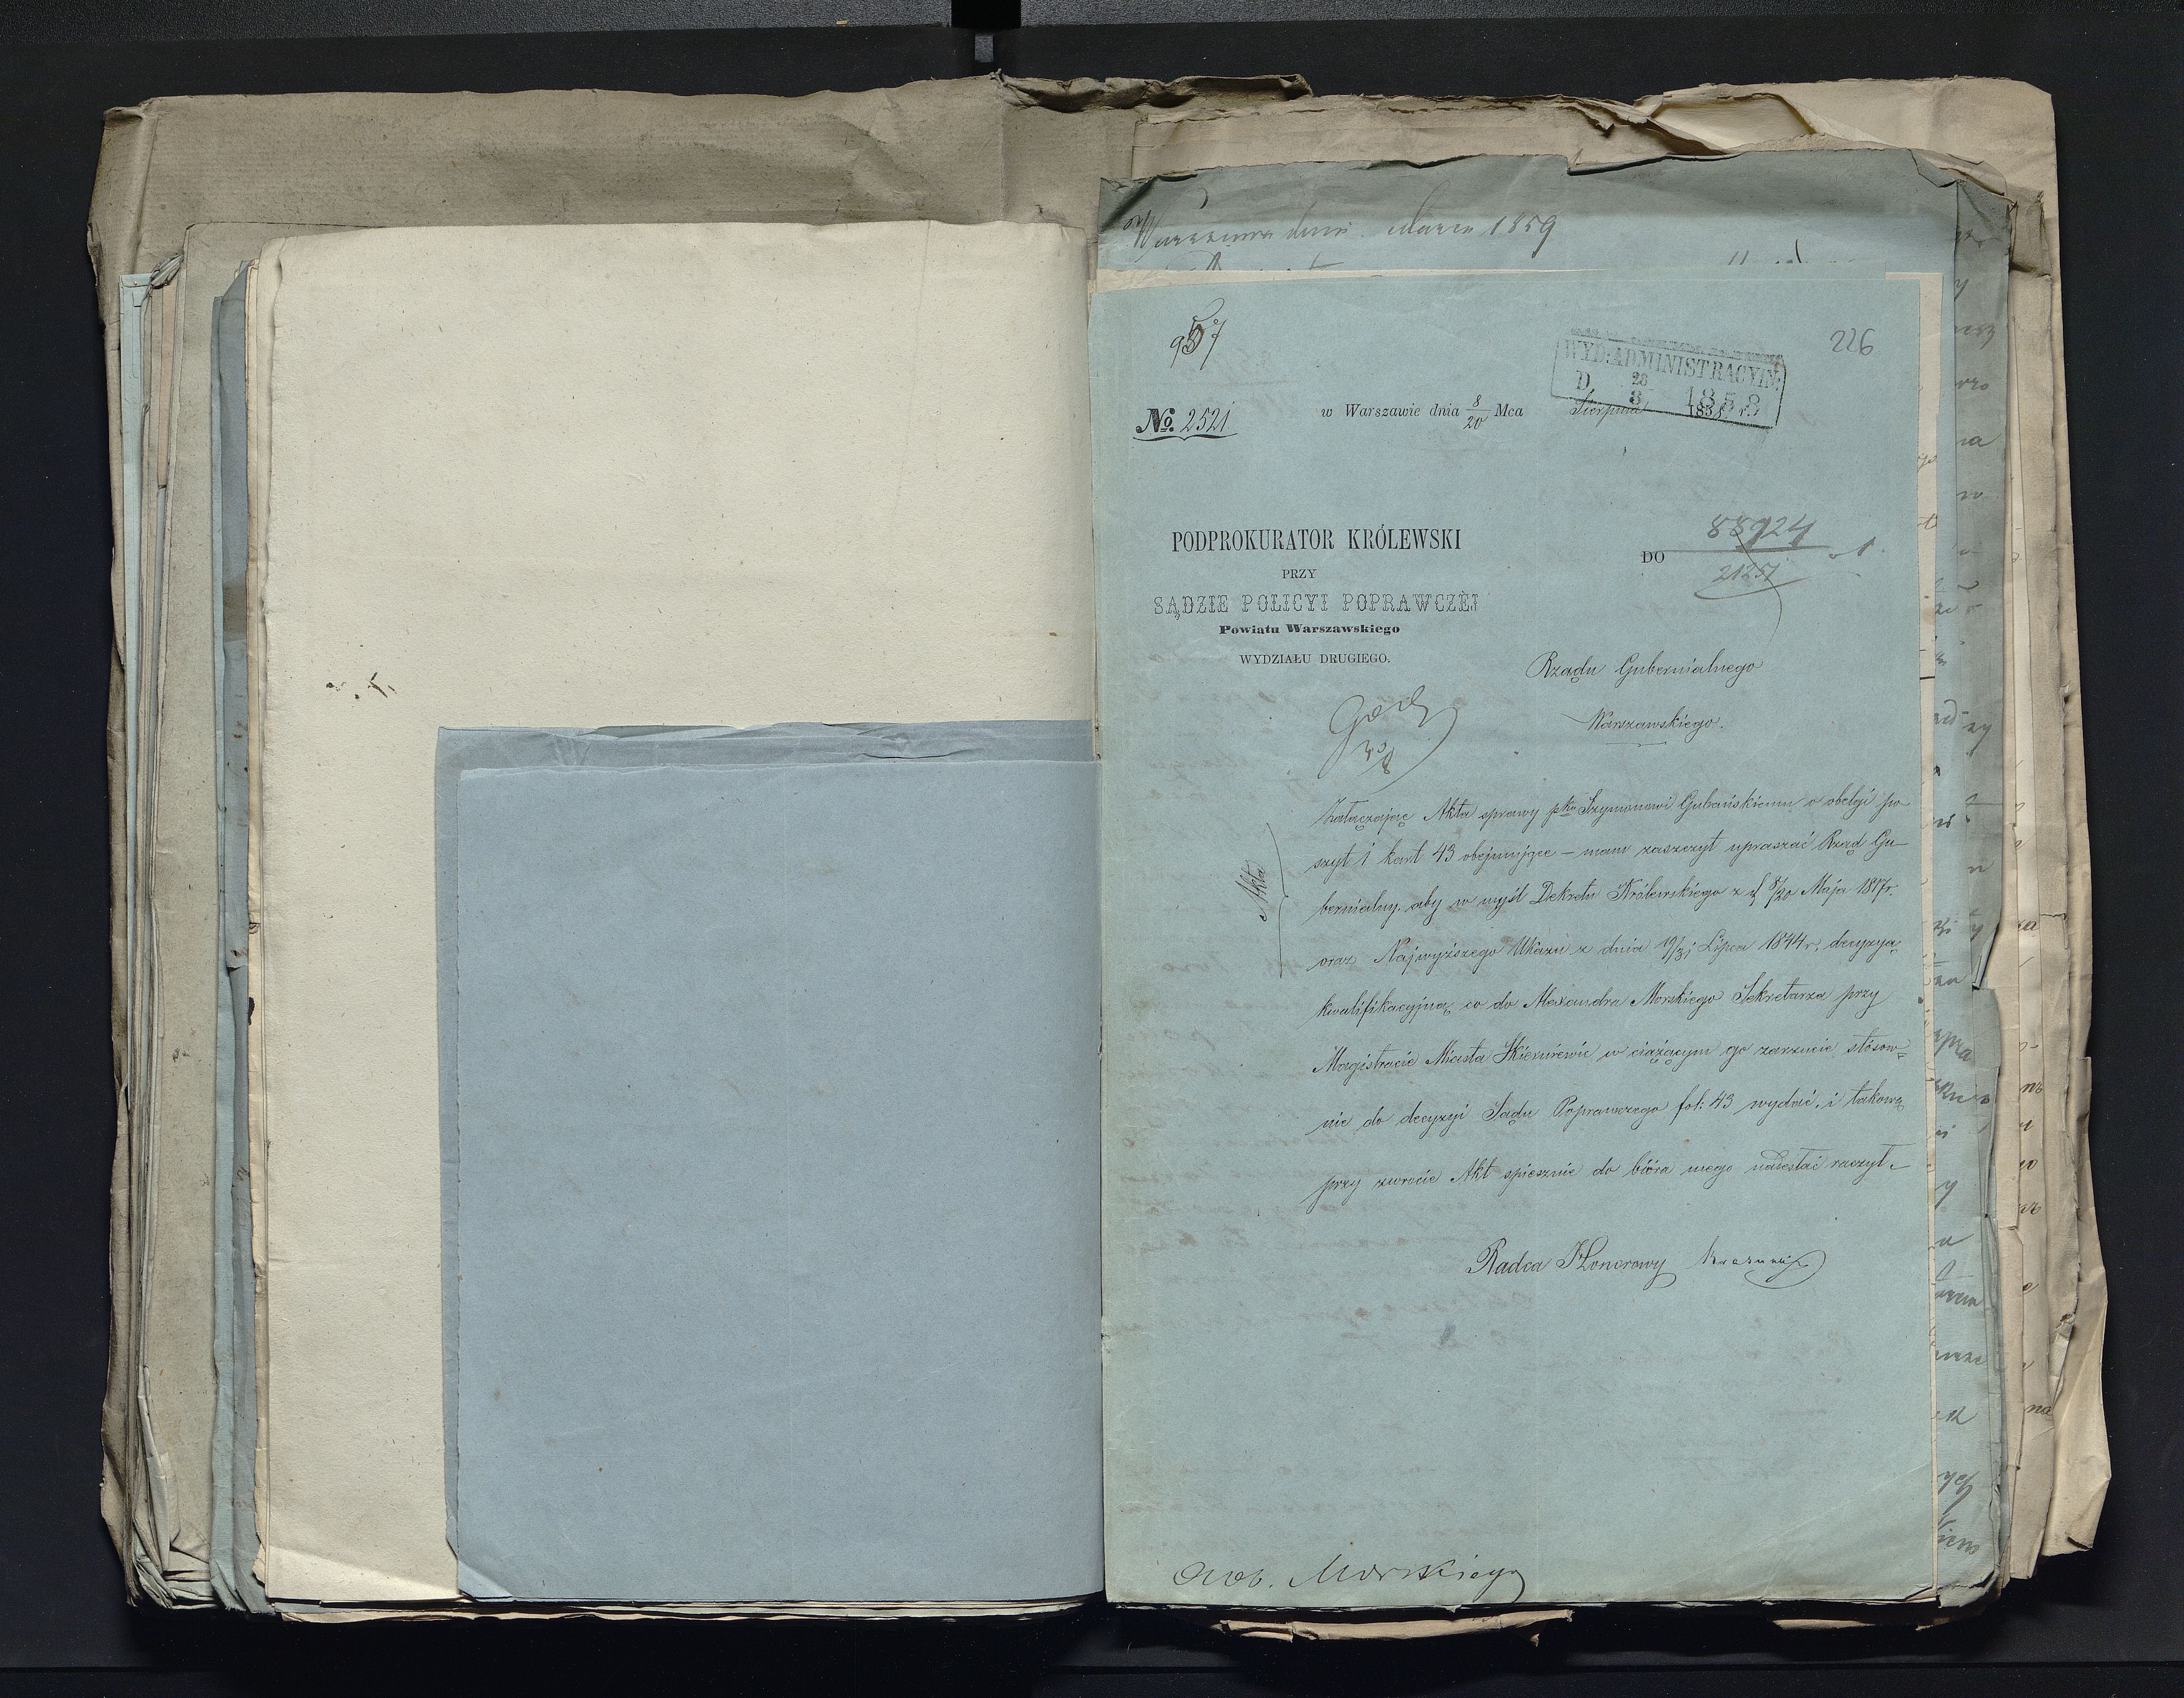 Warszawa dnia Marca 1859
957
226
WYD: ADMINISTRACYJN:
D. 28/8 1858
No. 2521
w Warszawie dnia 8/20 Mca Sierpnia 1858 r.
PODPROKURATOR KRÓLEWSKI
PRZY
SĄDZIE POLICYI POPRAWCZÉJ
Powiatu Warszawskiego
WYDZIAŁU DRUGIEGO.
88924
DO
21251
Rządu Gubernialnego
Warszawskiego.
Akta
Załączając Akta sprawy pko Szymonowi Gubańskiemu o obelgi po-
szyt 1 kart 43 obejmujące – mam zaszczyt upraszać Rząd Gu-
bernialny, aby w myśl Dekretu Królewskiego z d 8/20 Maja 1817r.
oraz Najwyższego Ukazu z dnia 19/31 Lipca 1844 r. decyzyą
kwalifikacyjną co do Alexandra Morskiego Sekretarza przy
Magistracie Miasta Skierniewic w ciążącym go zarzucie stósow-
nie do decyzyi Sądu Poprawczego fol: 43 wydać, i takową
przy zwrocie Akt spiesznie do bióra mego nadesłać raczył.
Radca Honorowy
Morskiego